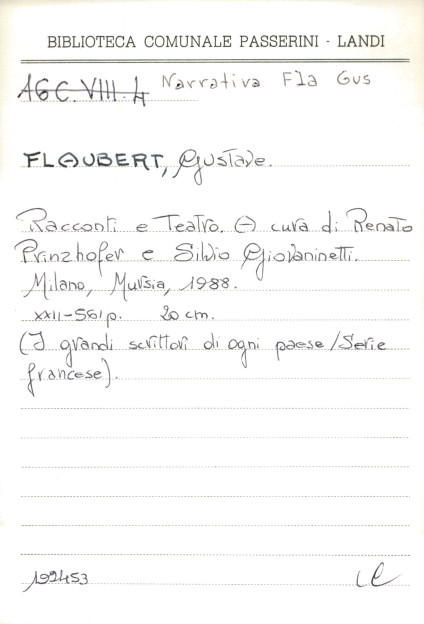 BIBLIOTECA COMUNALE PASSERINI - LANDI
AGC.VIII.4 Narrativa Fla Gus
FLAUBERT, Gustave.
Racconti e Teatro. A cura di Renato
Prinzhofer e Silvio Giovaninetti.
Milano, Mursia, 1988.
XXII-561 p. 20 cm.
(I grandi scrittori di ogni paese/Serie
francese).
192453